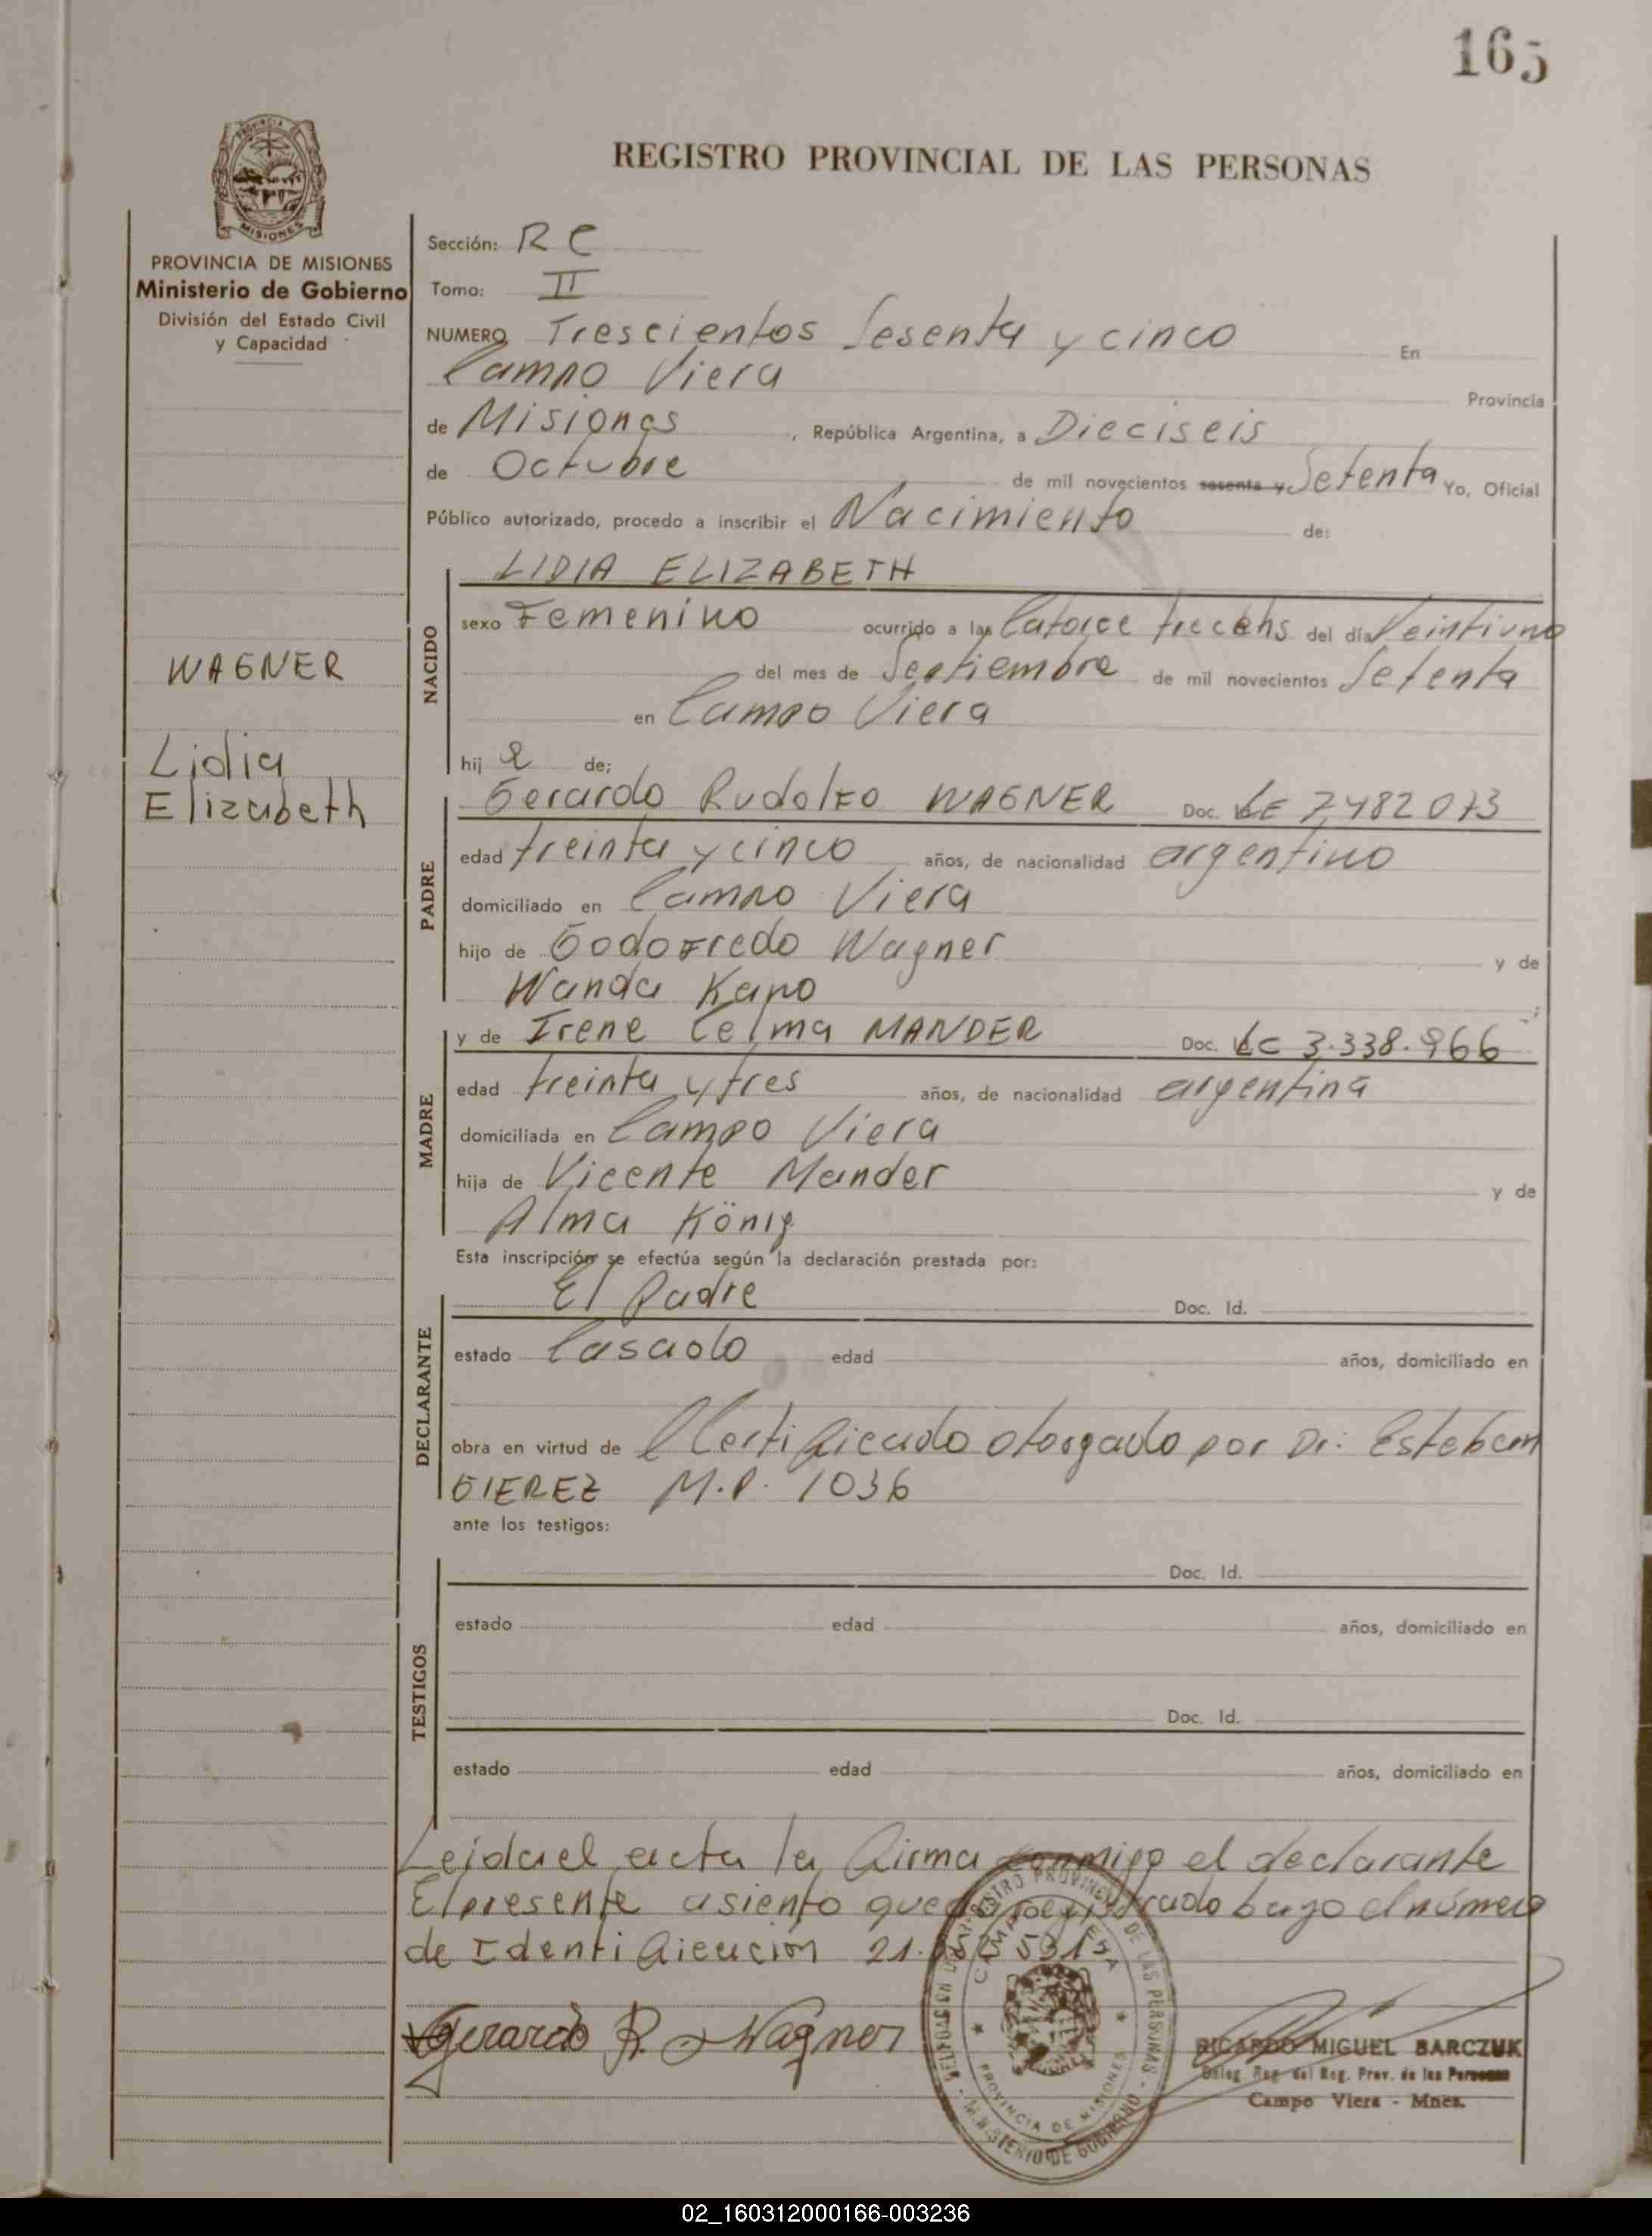 165
REGISTRO PROVINCIAL DE LAS PERSONAS
MISIONES
PROVINCIA DE MISIONES
Ministerio de Gobierno
División del Estado Civil
y Capacidad
Sección: R C
Tomo: II
NUMERO Trescientos Sesenta y cinco En
Campo Viera Provincia
de Misiones, República Argentina, a Dieciseis
de Octubre de mil novecientos sesenta y Setenta Yo, Oficial
Público autorizado, procedo a inscribir el Nacimiento de:
LIDIA ELIZABETH
NACIDO
sexo Femenino ocurrido a las Catorce trece hs. del día Veintiuno
WAGNER
del mes de Septiembre de mil novecientos Setenta
en Campo Viera
Lidia
Elizabeth
hij a de;
PADRE
Gerardo Rudolfo WAGNER Doc. LE 7,482 073
edad treinta y cinco años, de nacionalidad argentino
domiciliado en Campo Viera
hijo de Godofredo Wagner y de
Wanda Kapo
MADRE
y de Irene Celma MANDER Doc. LC 3.338.966
edad treinta y tres años, de nacionalidad argentina
domiciliada en Campo Viera
hija de Vicente Mander y de
Alma König
Esta inscripción se efectúa según la declaración prestada por:
DECLARANTE
El Padre Doc. Id.
estado Casado edad años, domiciliado en
obra en virtud de Certificado otorgado por Dr: Esteban
GIEREZ M.P. 1036
ante los testigos:
TESTIGOS
Doc. Id.
estado edad años, domiciliado en
Doc. Id.
estado edad años, domiciliado en
Leida el acta la firma conmigo el declarante
El presente asiento queda registrado bajo el número
de Identificación 21.
Gerardo R. Wagner
REGISTRO PROVINCIAL DE LAS PERSONAS
PROVINCIA DE MISIONES
MINISTERIO DE GOBIERNO
RICARDO MIGUEL BARCZUK
Deleg. Reg. del Reg. Prov. de las Personas
Campo Viera - Mnes.
02_160312000166-003236